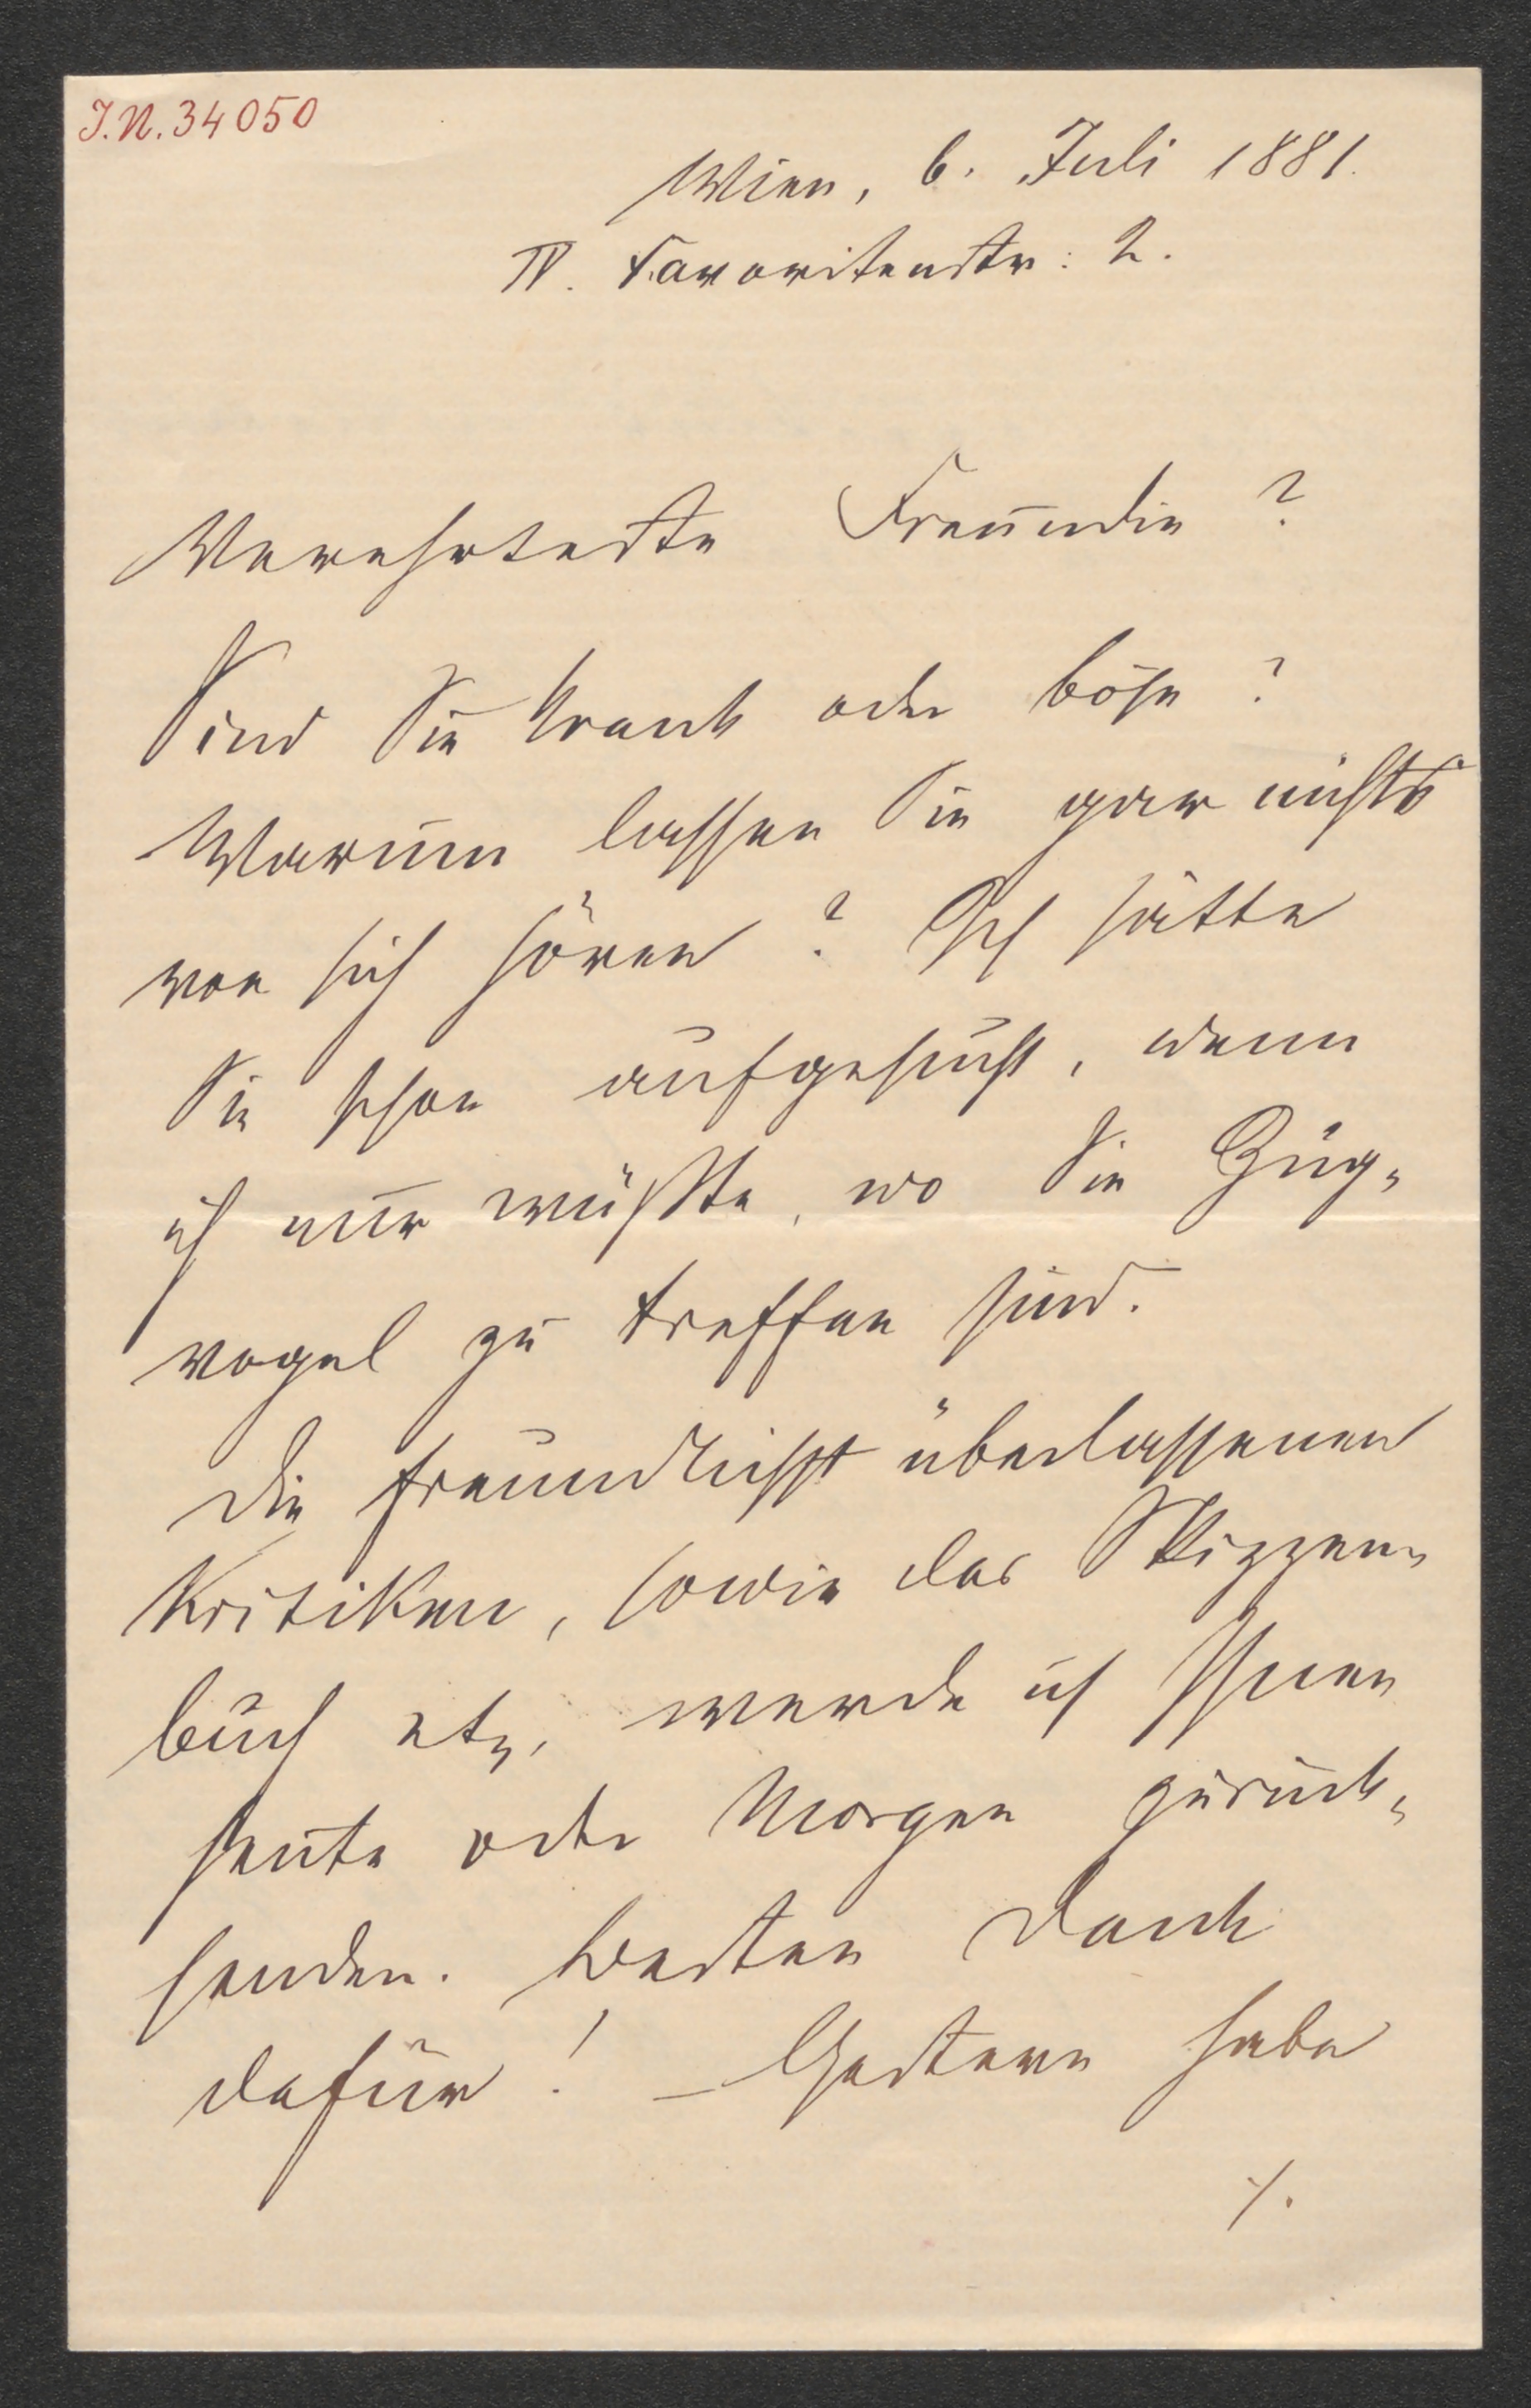 J.N. 34050
Wien, 6. Juli 1881.
IV. Favoritenstr: 2.
Verehrteste Freundin?
Sind Sie krank oder böse?
Warum lassen Sie gar nichts
von sich hören? Ich hätte
Sie schon aufgesucht, wenn
ich nur wüßte, wo Sie Zug-
vogel zu treffen sind.
Die freundlichst überlassenen
Kritiken, sowie das Skizzen-
buch etz. werde ich Ihnen
heute oder Morgen zurück-
senden. Besten Dank
dafür! – Gestern habe
./.